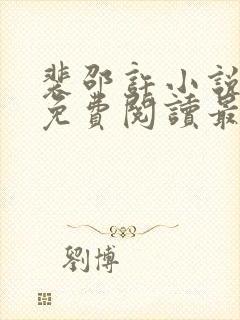 裴邵許小說
免費閱讀最
劉博